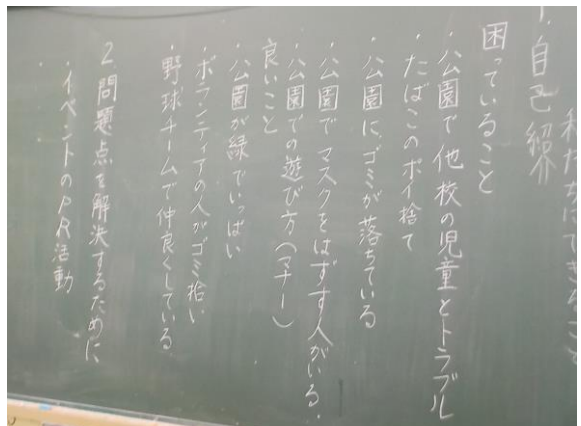 私たちにできること
1. 自己紹介
困っていること
・公園で他校の児童とトラブル
・たばこのポイ捨て
・公園に、ゴミが落ちている
・公園でマスクをはずす人がいる.
・公園での遊び方(マナー)
良いこと
・公園が緑でいっぱい
・ボランティアの人がゴミ拾い
・野球チームで仲良くしている
2. 問題点を解決するために
・イベントのPR活動
・